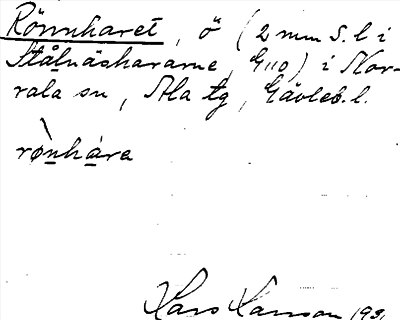 Rönnharet, ö (2 mm S. l i
Stålnäshararne, G110) i Nor-
rala sn, Ala tg, Gävleb. l.
rønhara
Hans Hanson 193